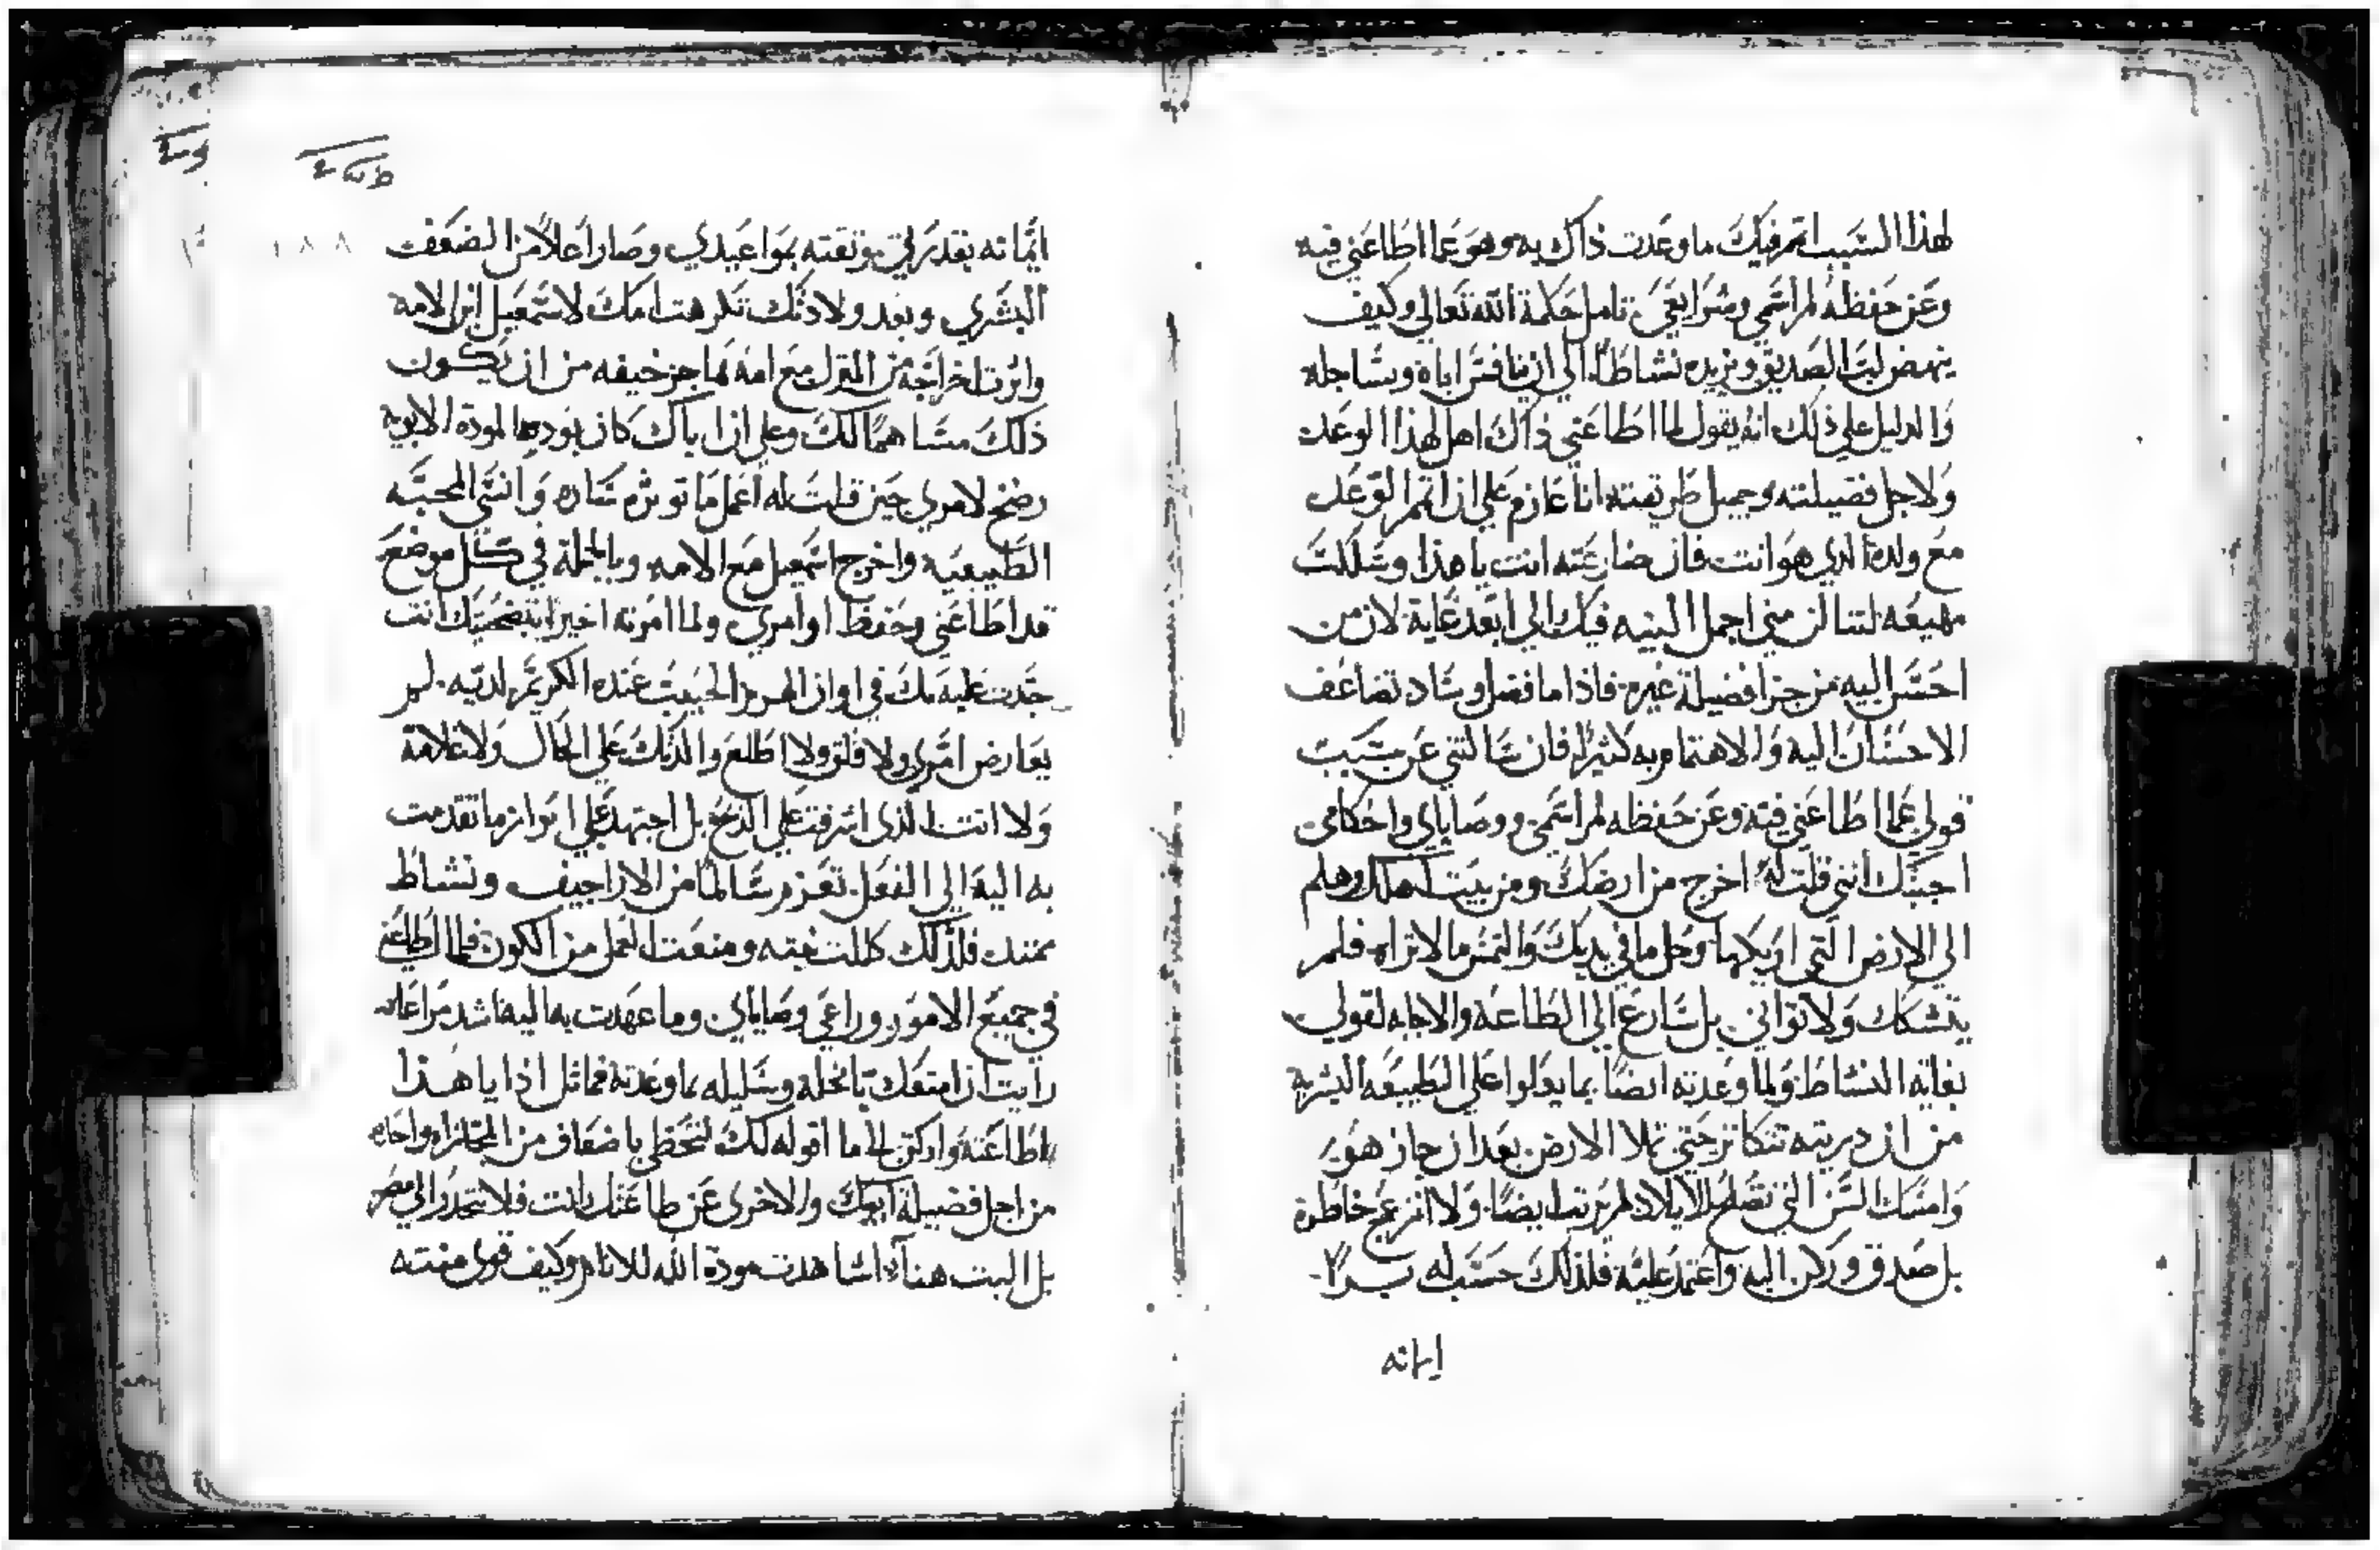 لهذا السبب اتمم فيك ما وعدت ذاك به وهو عما اطاعني فيه
وعن حفظه لمراسمي وشرايعي تامل حكمة الله تعالي وكيف
ينهض لب الصديق ويزيده نشاطا الي ان ينافس اباه ويساجله
والدليل علي ذلك انه يقول لما اطاعني ذاك اهل لهذا الوعد
ولاجل فضيلته وجميل طريقته انا عازم علي ان اتمم الوعد
مع ولده الذي هو انت فان ضارعته انت يا هذا وسلكت
مهيعه لتنالن مني اجمل النيه فيك الي ابعد غاية لان من
احسن اليه من جرا فضيلة غيره فاذا ما فضل وساد تضاعف
الاحسان اليه والاهتمام به كثيرا فان سالتني عن سبب
قولي عما اطاعني فيه وعن حفظه لمراسمي ووصاياي واحكامي
اجبتك انني قلت له اخرج من ارضك ومن بيت اهلك وهلم
الي الارض التي اريكها وخل ما في يديك والتمس ما لا تراه فلم
يتشكك ولا تواني بل سارع الي الطاعة والاجابه لقولي
بغاية النشاط ولما وعدته ايضا بما يعلوا علي الطبيعه البشريه
من ان دريته تتكاثر حتي تملا الارض بعد ان جاز هو
وامساك السن التي تصلح للايلاد لم يرتب ايضا ولا انزعج خاطره
بل صدق وركن اليه واعتمد عليه فلذلك حسب له برا
ايمانه
ايمانه بقدرتي وثقته بمواعيدي وصارا علا من الضعف
البشري وبعد ولادتك تكرهت امك لاسمعيل ابن الامة
واثرت اخراجه من المنزل مع امه هاجر خيفه من ان يكون
ذلك مساهما لك وعلي ان اباك كان بوده المودة الابويه
رضخ لامري حين قلت له اعمل ما توثره ساره وانسي المحبه
الطبيعيه واخرج اسمعيل مع الامه وبالجملة في كل موضع
قد اطاعني وحفظ اوامري ولما امرته اخيرا بتضحيتك انت
جدت عليه بك في اوان الهرم الحبيب عنده الكريم لديه لم
يعارض امري ولا قلق ولا اطلع والدتك علي الحال ولا غلامه
ولا انت الذي اشرفت علي الذبح بل اجتهد علي ابراز ما تقدمت
به اليه الي الفعل بعزم سالما من الاراجيف ونشاط
ممتد فلذلك كللت نيته ومنعت العمل من الكون فلما اطاعني
في جميع الامور وراعي وصاياي وما عهدت به اليه اشد مراعاه
رايت ان امتعك يا نجله وسليله بما وعدته فماثل اذا يا هذا
اطاعته واركن الي ما اقوله لك لتحظي باضعاف من المجازاه واحده
من اجل فضيلة ابيك والاخري عن طاعتك انت فلا تنحدر الي مصر
بل البت هنا اشاهدت مودة الله للانام وكيف قوي منته